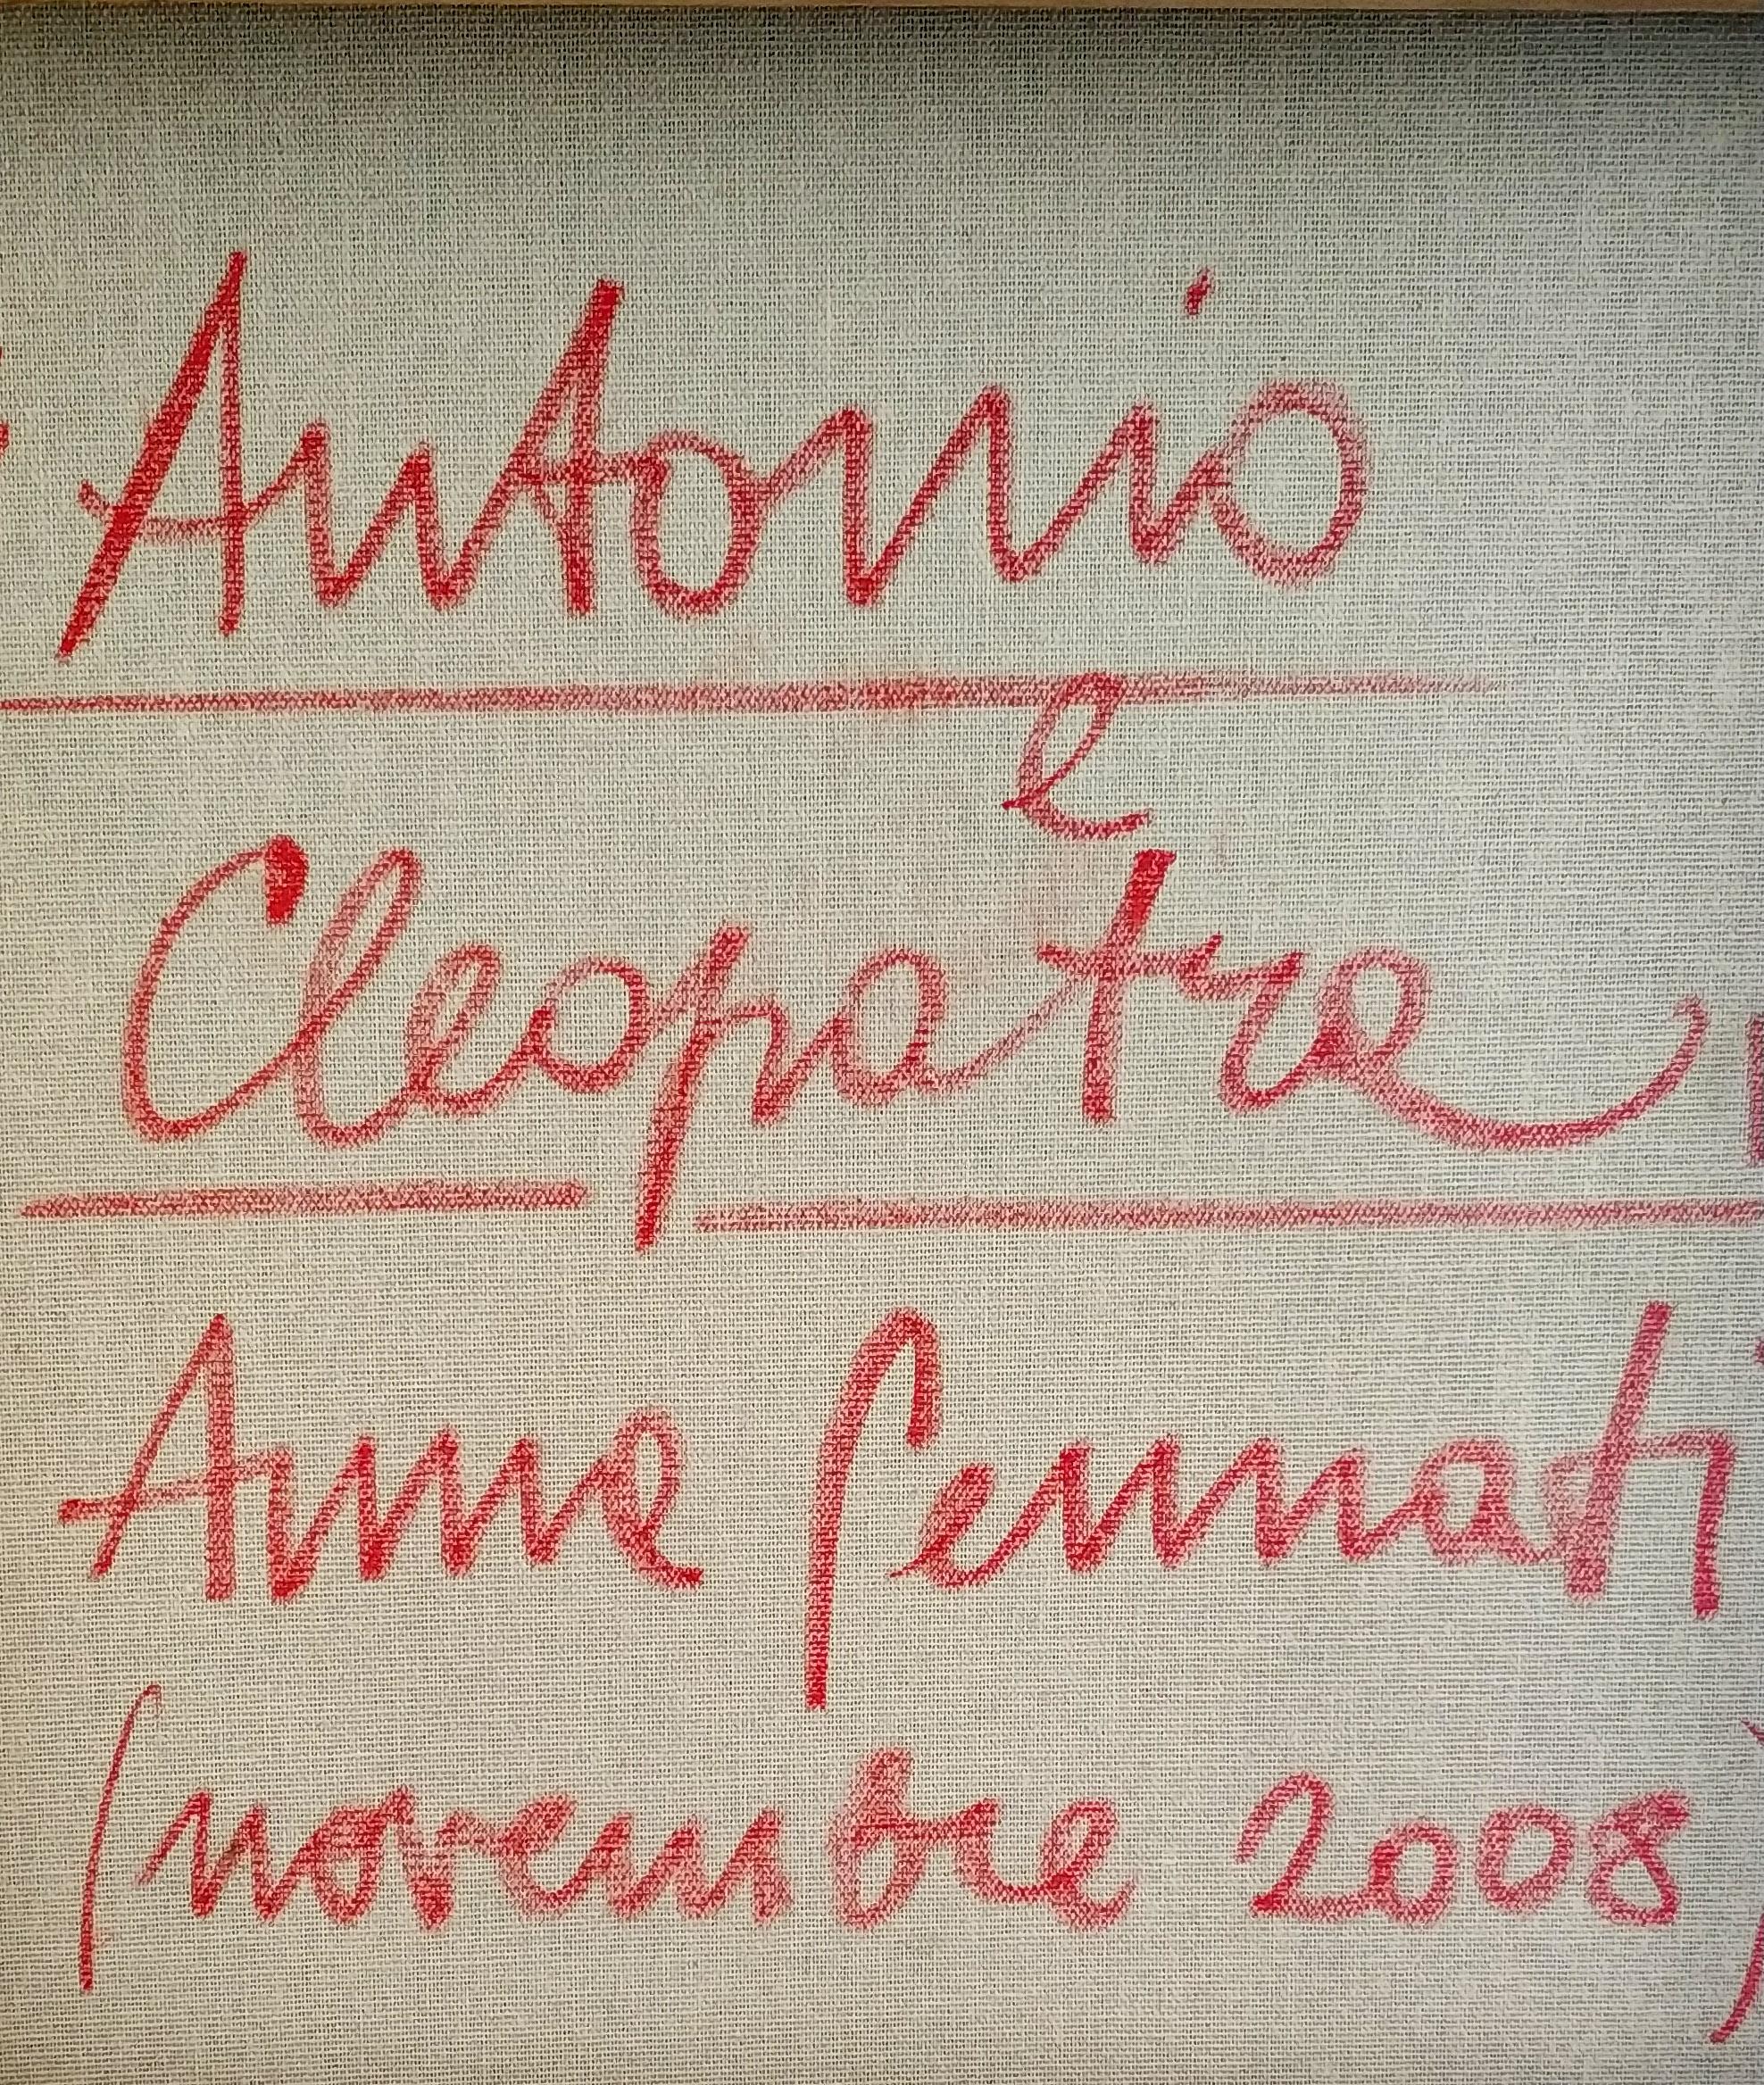 Antonio
e
Cleopatra
Anna Pennati
(novembre 2008)